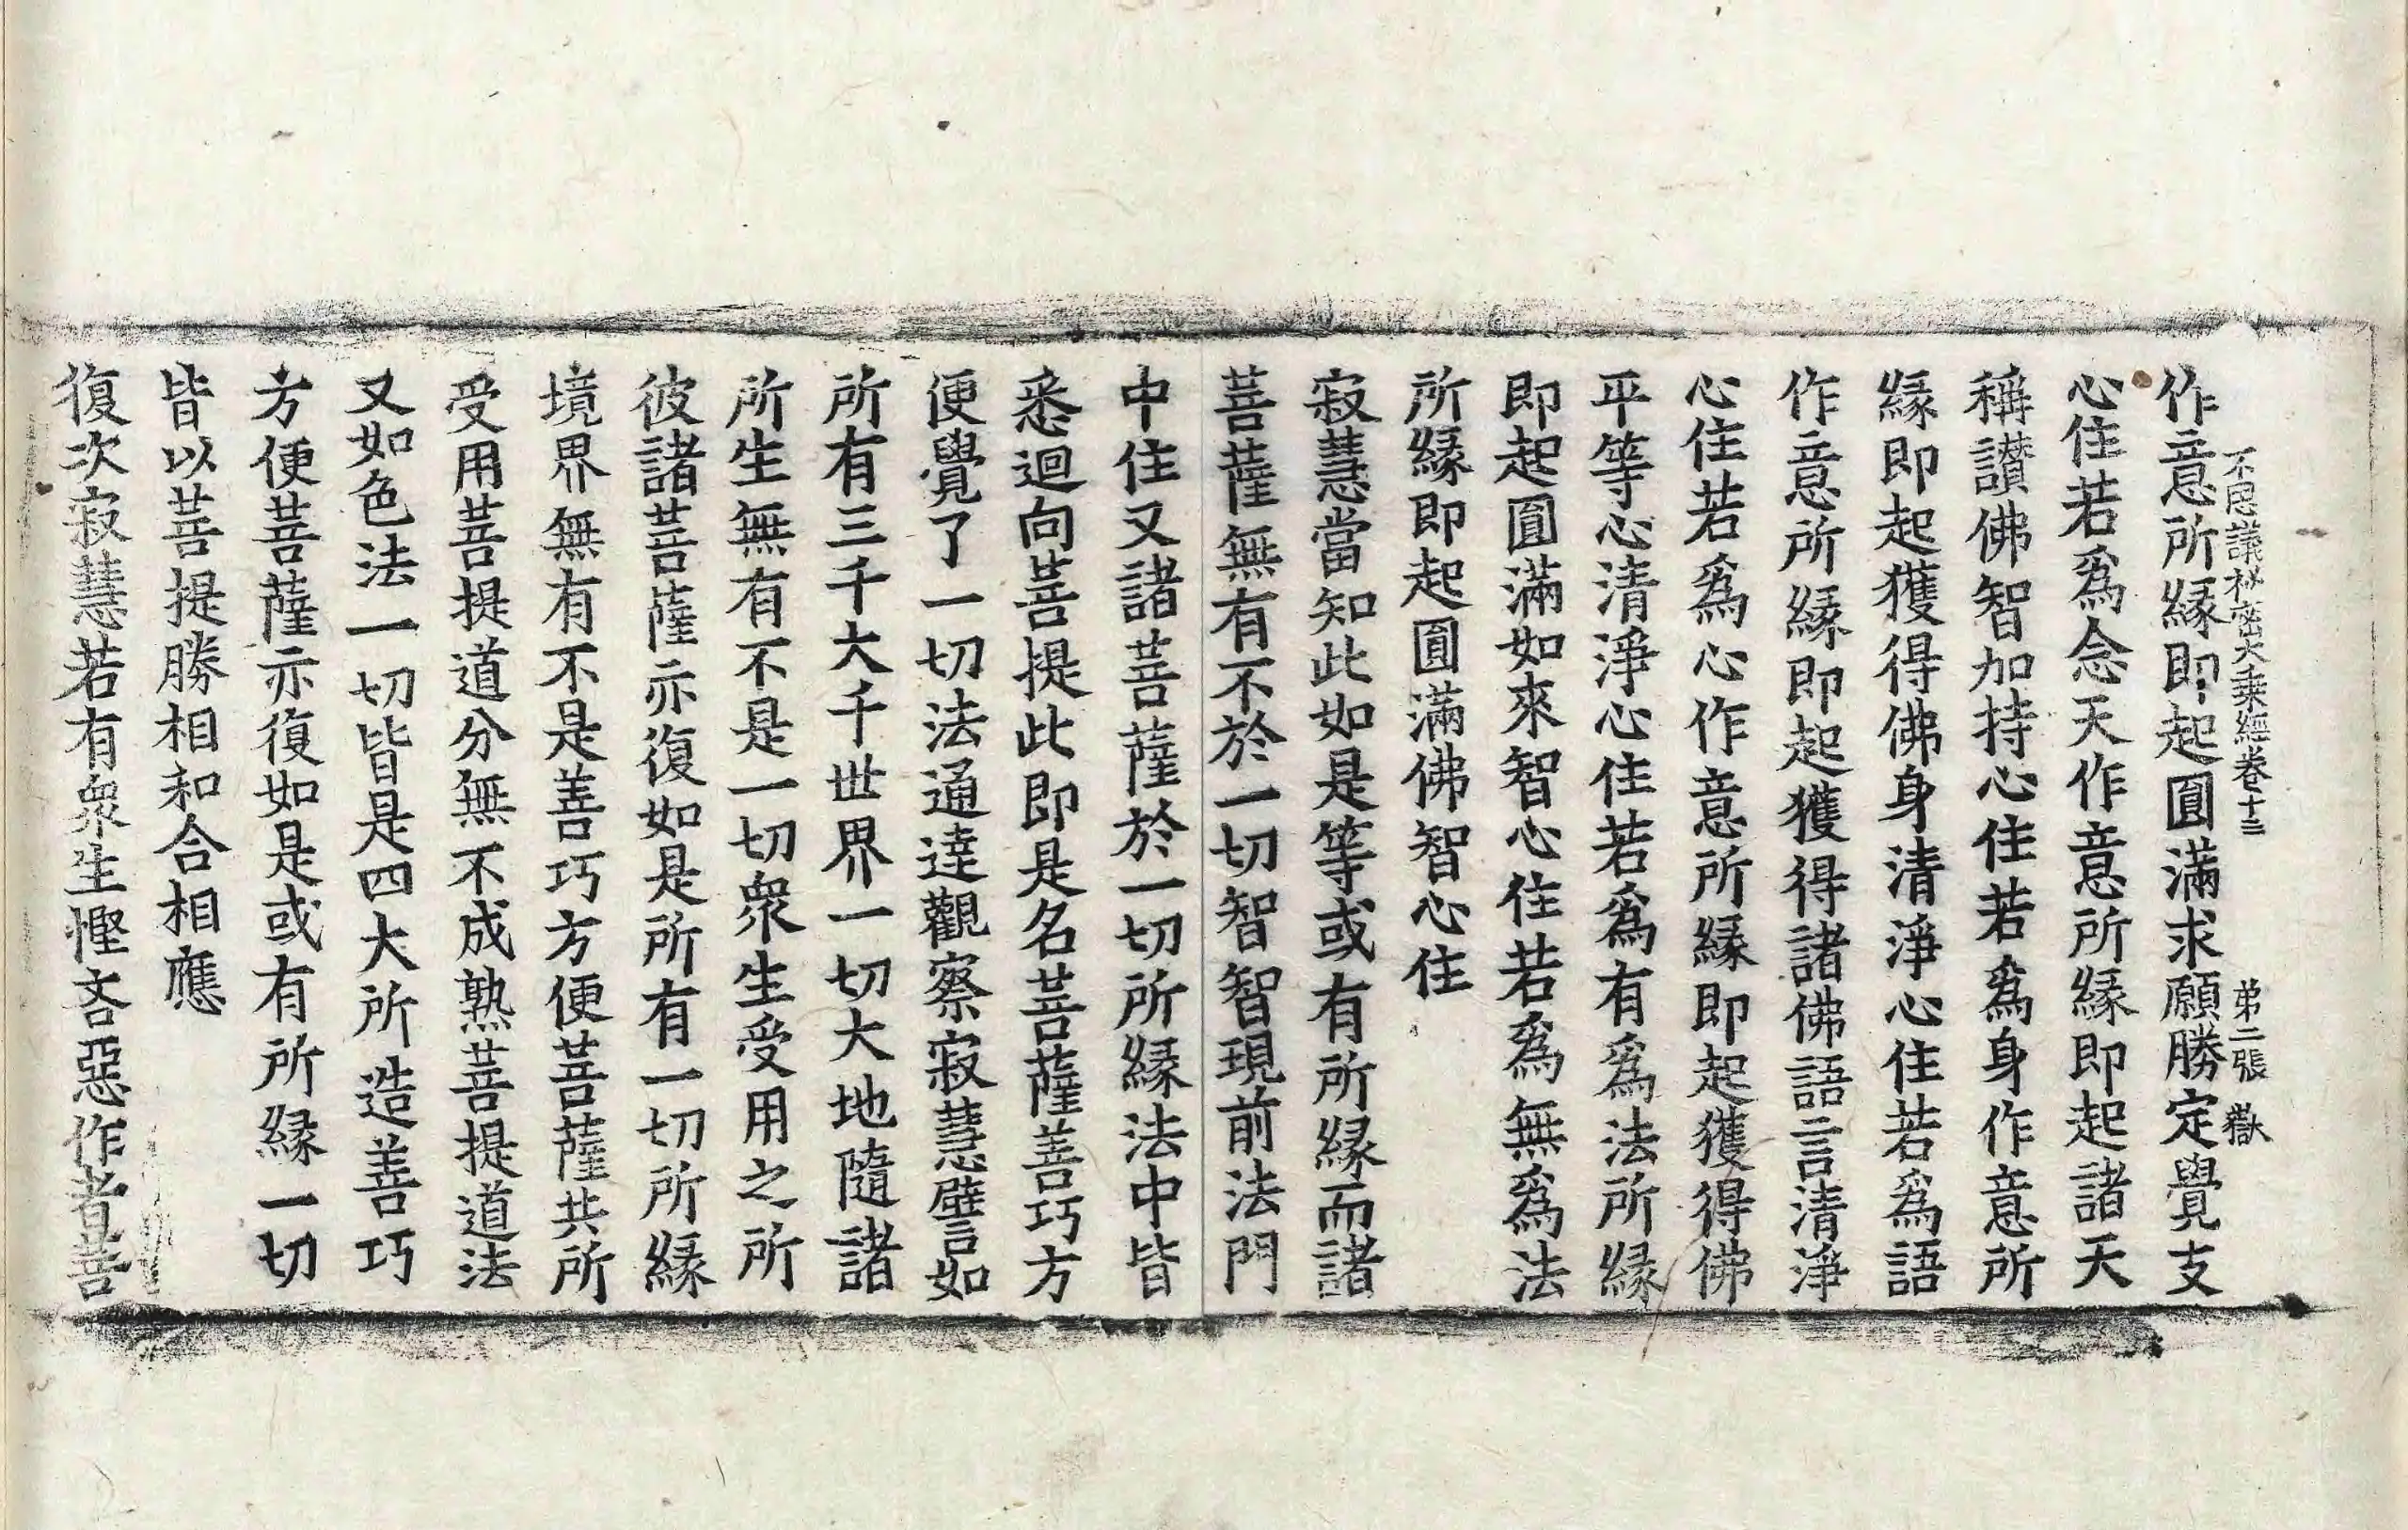 不思議秘密大乘經卷十三 第二張 嶽
作意所緣即起圓滿求願勝定覺支
心住若爲念天作意所緣即起諸天
稱讃佛智加持心住若爲身作意所
緣即起獲得佛身清淨心住若爲語
作意所緣即起獲得諸佛語言清淨
心住若爲心作意所緣即起獲得佛
平等心清淨心住若爲有爲法所緣
即起圓滿如來智心住若爲無爲法
所緣即起圓滿佛智心住
寂慧當知此如是等或有所緣而諸
菩薩無有不於一切智智現前法門
中住又諸菩薩於一切所緣法中皆
悉迴向菩提此即是名菩薩善巧方
便覺了一切法通達觀察寂慧譬如
所有三千大千世界一切大地隨諸
所生無有不是一切衆生受用之所
彼諸菩薩亦復如是所有一切所緣
境界無有不是善巧方便菩薩共所
受用菩提道分無不成熟菩提道法
又如色法一切皆是四大所造善巧
方便菩薩亦復如是或有所緣一切
皆以菩提勝相和合相應
復次寂慧若有衆生慳吝惡作者菩